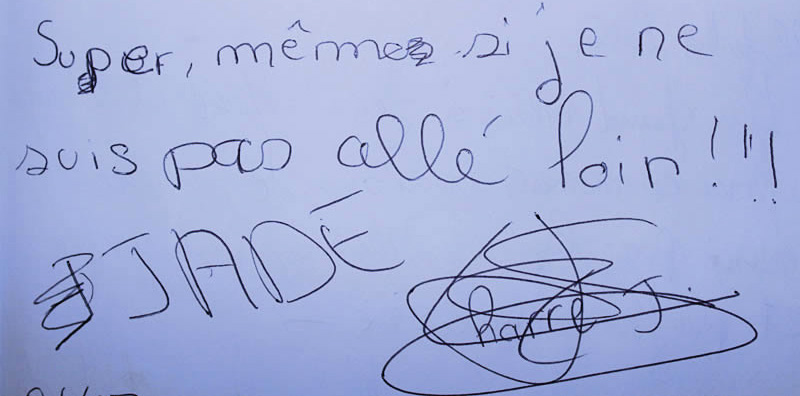 Super, même si je ne
suis pas allé loin!!!
JADE